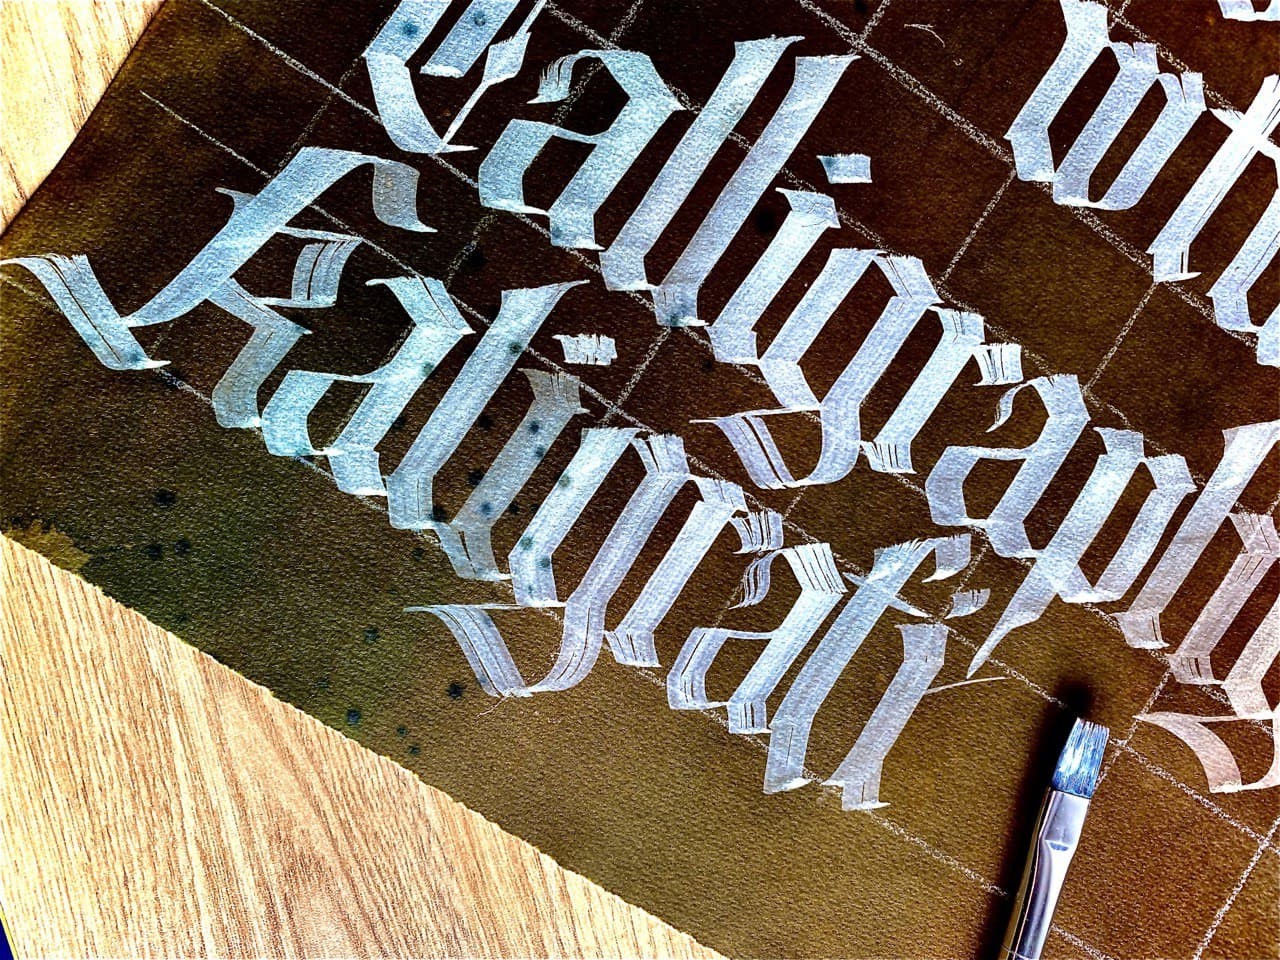 Calligraphy
Kaligrafi